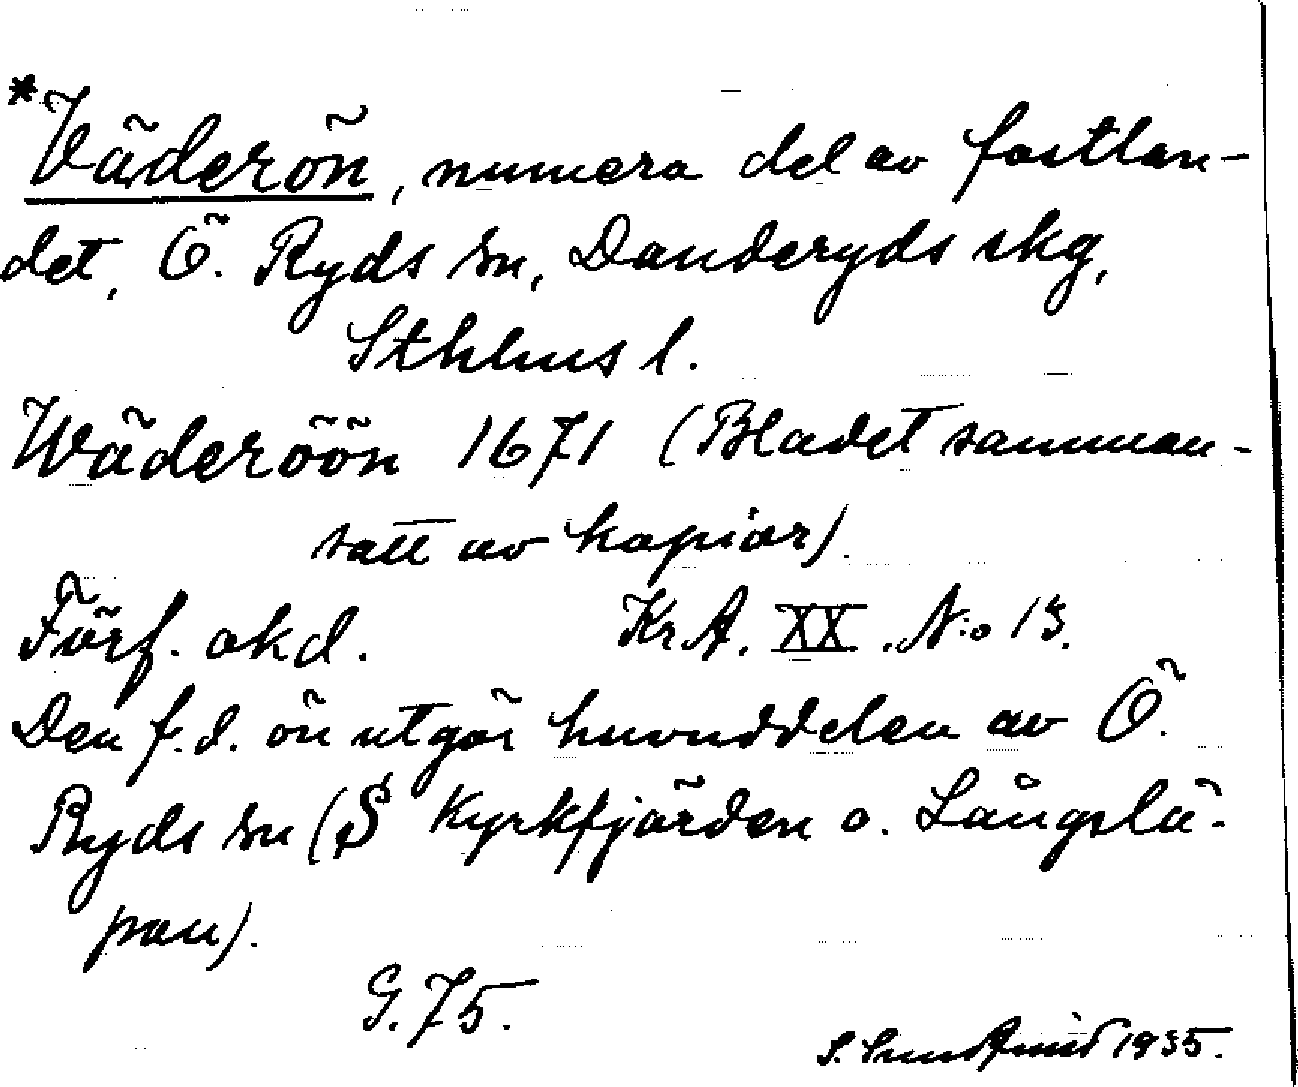 *Väderön, numera del av fastlan-
det, Ö. Ryds sn, Danderyds skg,
Sthlms l.
Wäderöön 1671 (Bladet samman-
satt av kopior).
Förf. okd. KrA. XX. No 13.
Den f.d. ön utgör huvuddelen av Ö.
Ryds sn (S Kyrkfjärden o. Långslä-
pan).
G. 75.
S. 1935.